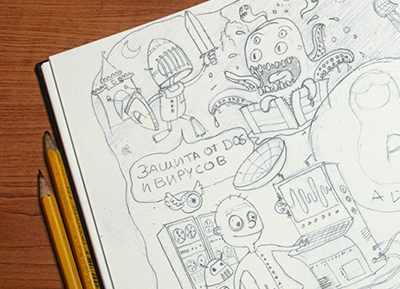 ЗАЩИТА ОТ DOS
И ВИРУСОВ